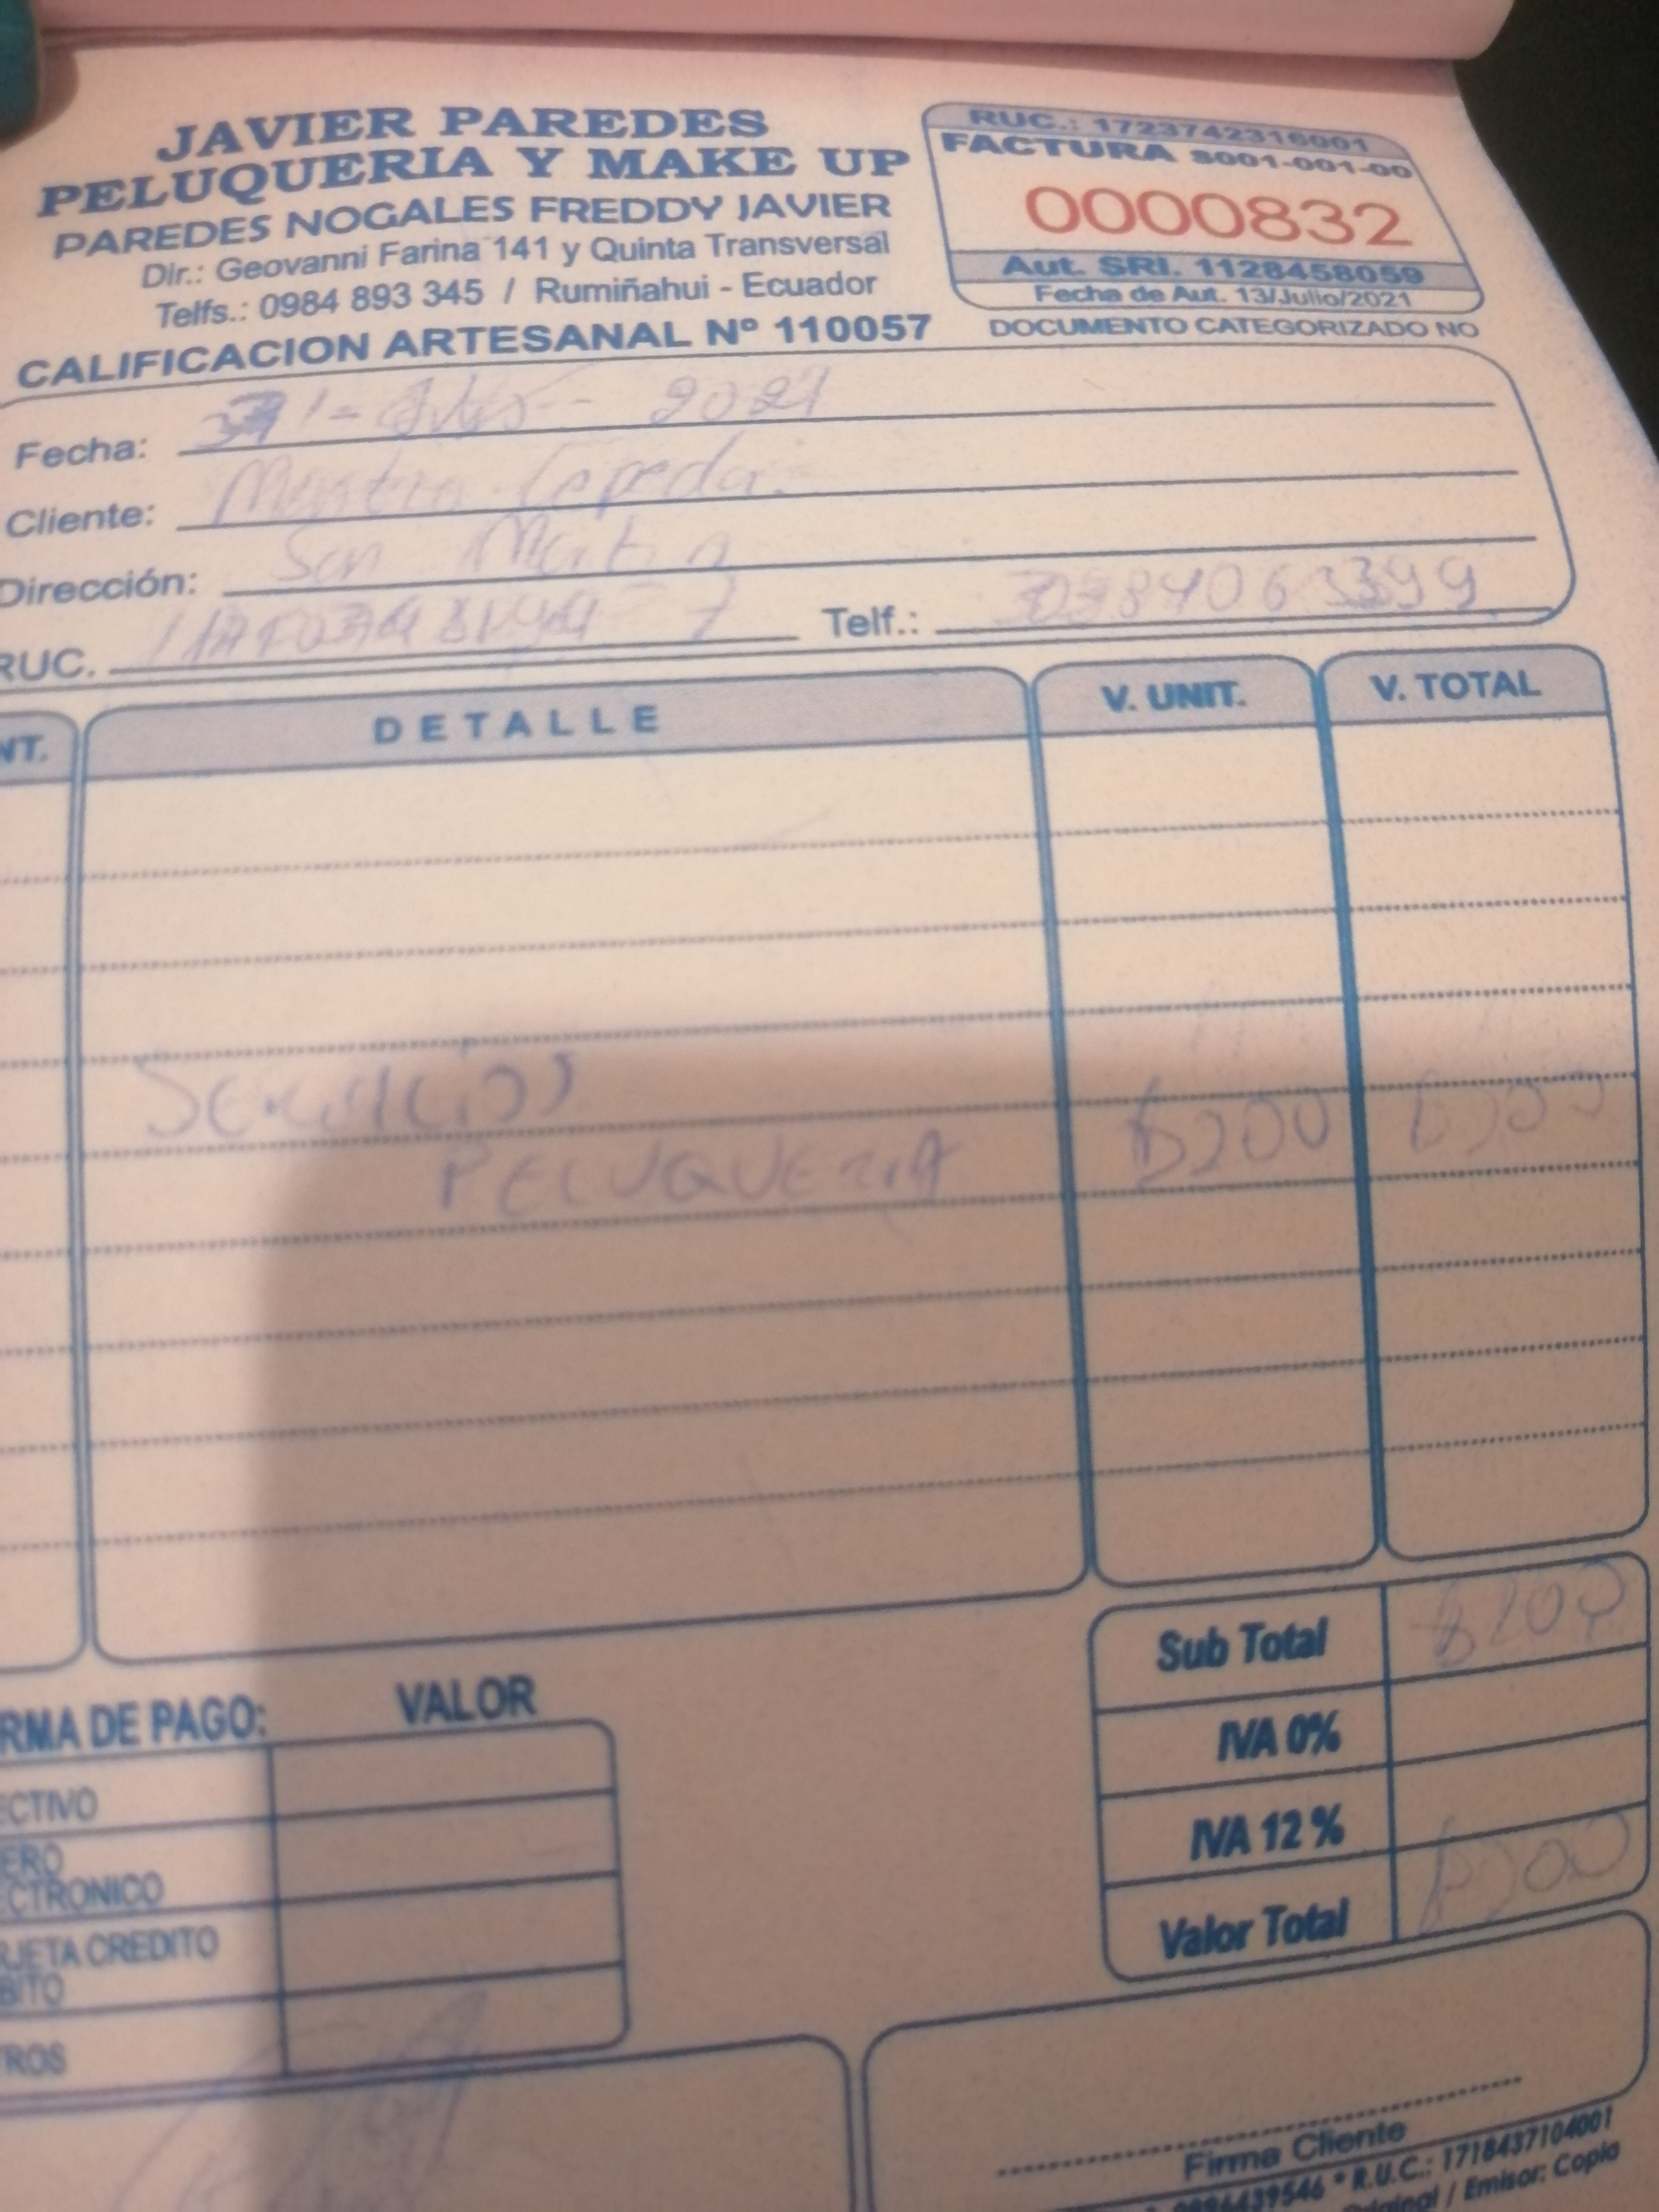 JAVIER PAREDES
PELUQUERIA Y MAKE UP
PAREDES NOGALES FREDDY JAVIER
Dir.: Geovanni Farina 141 y Quinta Transversal
Telfs.: 0984 893 345 / Rumiñahui - Ecuador
CALIFICACION ARTESANAL Nº 110057
RUC.: 1723742316001
FACTURA S001-001-00
0000832
Aut. SRI. 1128458059
Fecha de Aut. 13/Julio/2021
DOCUMENTO CATEGORIZADO NO
Fecha: 2021
Cliente: Cepeda
Dirección: San Martin
RUC. Telf.:
NT. DETALLE V. UNIT. V. TOTAL
SERVICIOS
PELUQUERIA $200 $200
Sub Total $200
IVA 0%
IVA 12 %
Valor Total $200
RMA DE PAGO: VALOR
ECTIVO
ERO
ECTRONICO
RJETA CREDITO
BITO
ROS
Firma Cliente
9546 * R.U.C.: 1718437104001
Original / Emisor: Copia